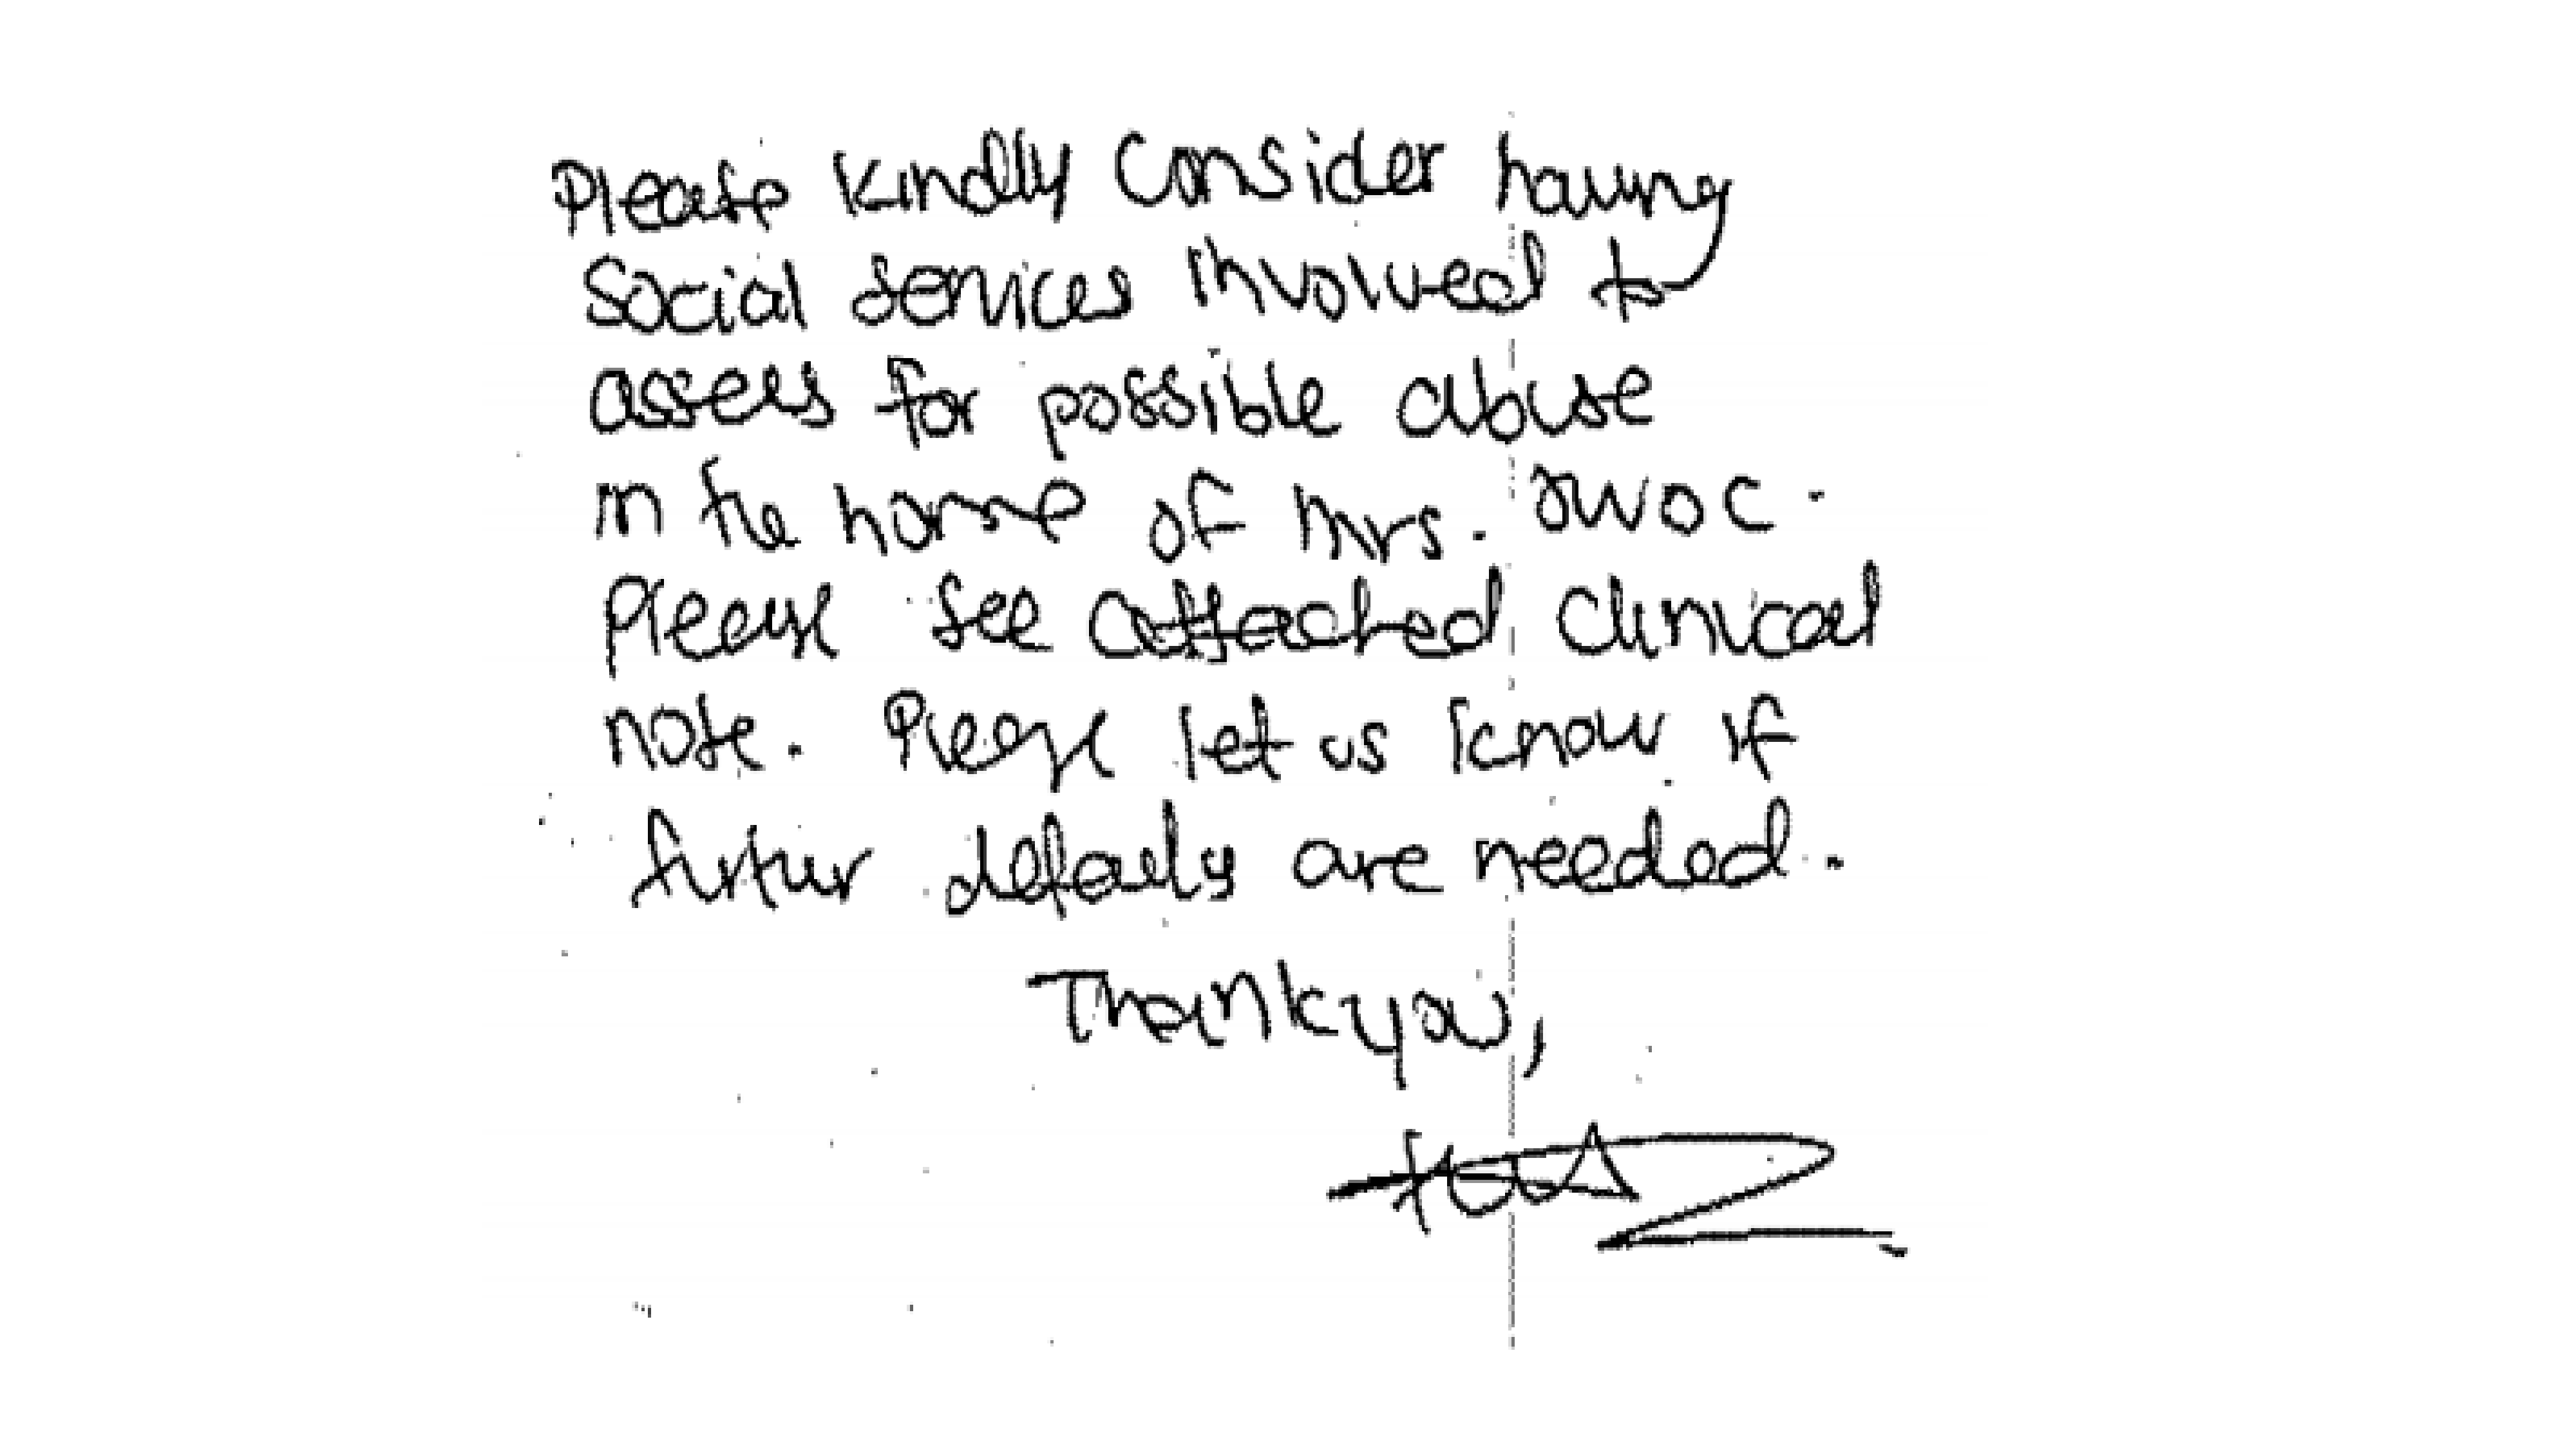 Please kindly consider having
social services involved to
assess for possible abuse
in the home of Mrs.
Please see attached clinical
note. Please let us know if
furtur details are needed.
Thank you,